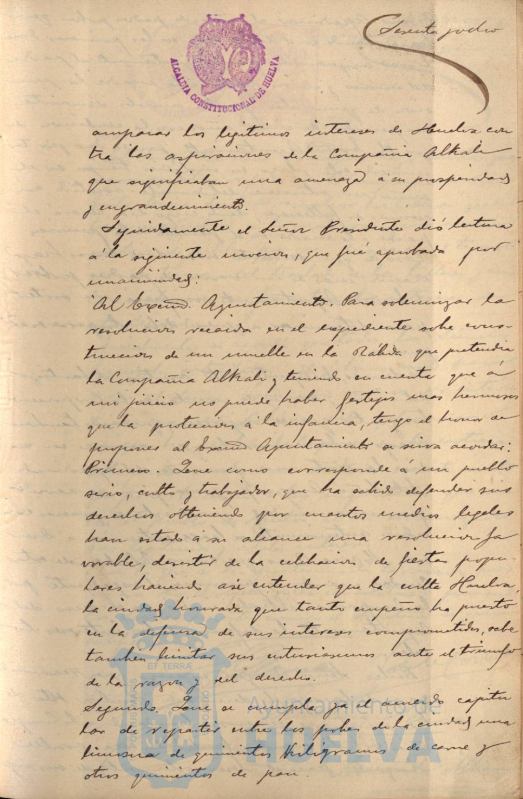 Sesenta y ocho
ALCALDIA CONSTITUCIONAL DE HUELVA
amparar los legitimos intereses de Huelva con
tra las aspiraciones de la Compañia Alkali
que significaban una amenaza a su prosperidad
y engrandecimiento.
Seguidamente el Señor Presidente dió lectura
á la siguiente mocion, que fué aprobada por
unanimidad:
"Al Excmo. Ayuntamiento. Para solemnizar la
resolucion recaida en el expediente sobre cons-
truccion de un muelle en la Rábida que pretendia
la Compañia Alkali y teniendo en cuenta que á
mi juicio no puede haber festejos mas hermosos
que la proteccion á la infancia, tengo el honor de
proponer al Excmo. Ayuntamiento se sirva acordar:
Primero. Que como corresponde á un pueblo
serio, culto y trabajador, que ha sabido defender sus
derechos obteniendo por cuantos medios legales
han estado a su alcance una resolucion fa
vorable, desistir de la celebracion de fiestas popu-
lares, haciendo asi entender que la culta Huelva,
la ciudad honrada que tanto empeño ha puesto
en la defensa de sus intereses comprometidos, sabe
tambien limitar sus entusiasmos ante el triunfo
de la razon y del derecho.
Segundo. Que se cumpla ya el acuerdo capitu
lar de repartir entre los pobres de la ciudad una
limosna de quinientos kilógramos de carne y
otros quinientos de pan.
ET TERRA
Ayuntamiento de
HUELVA